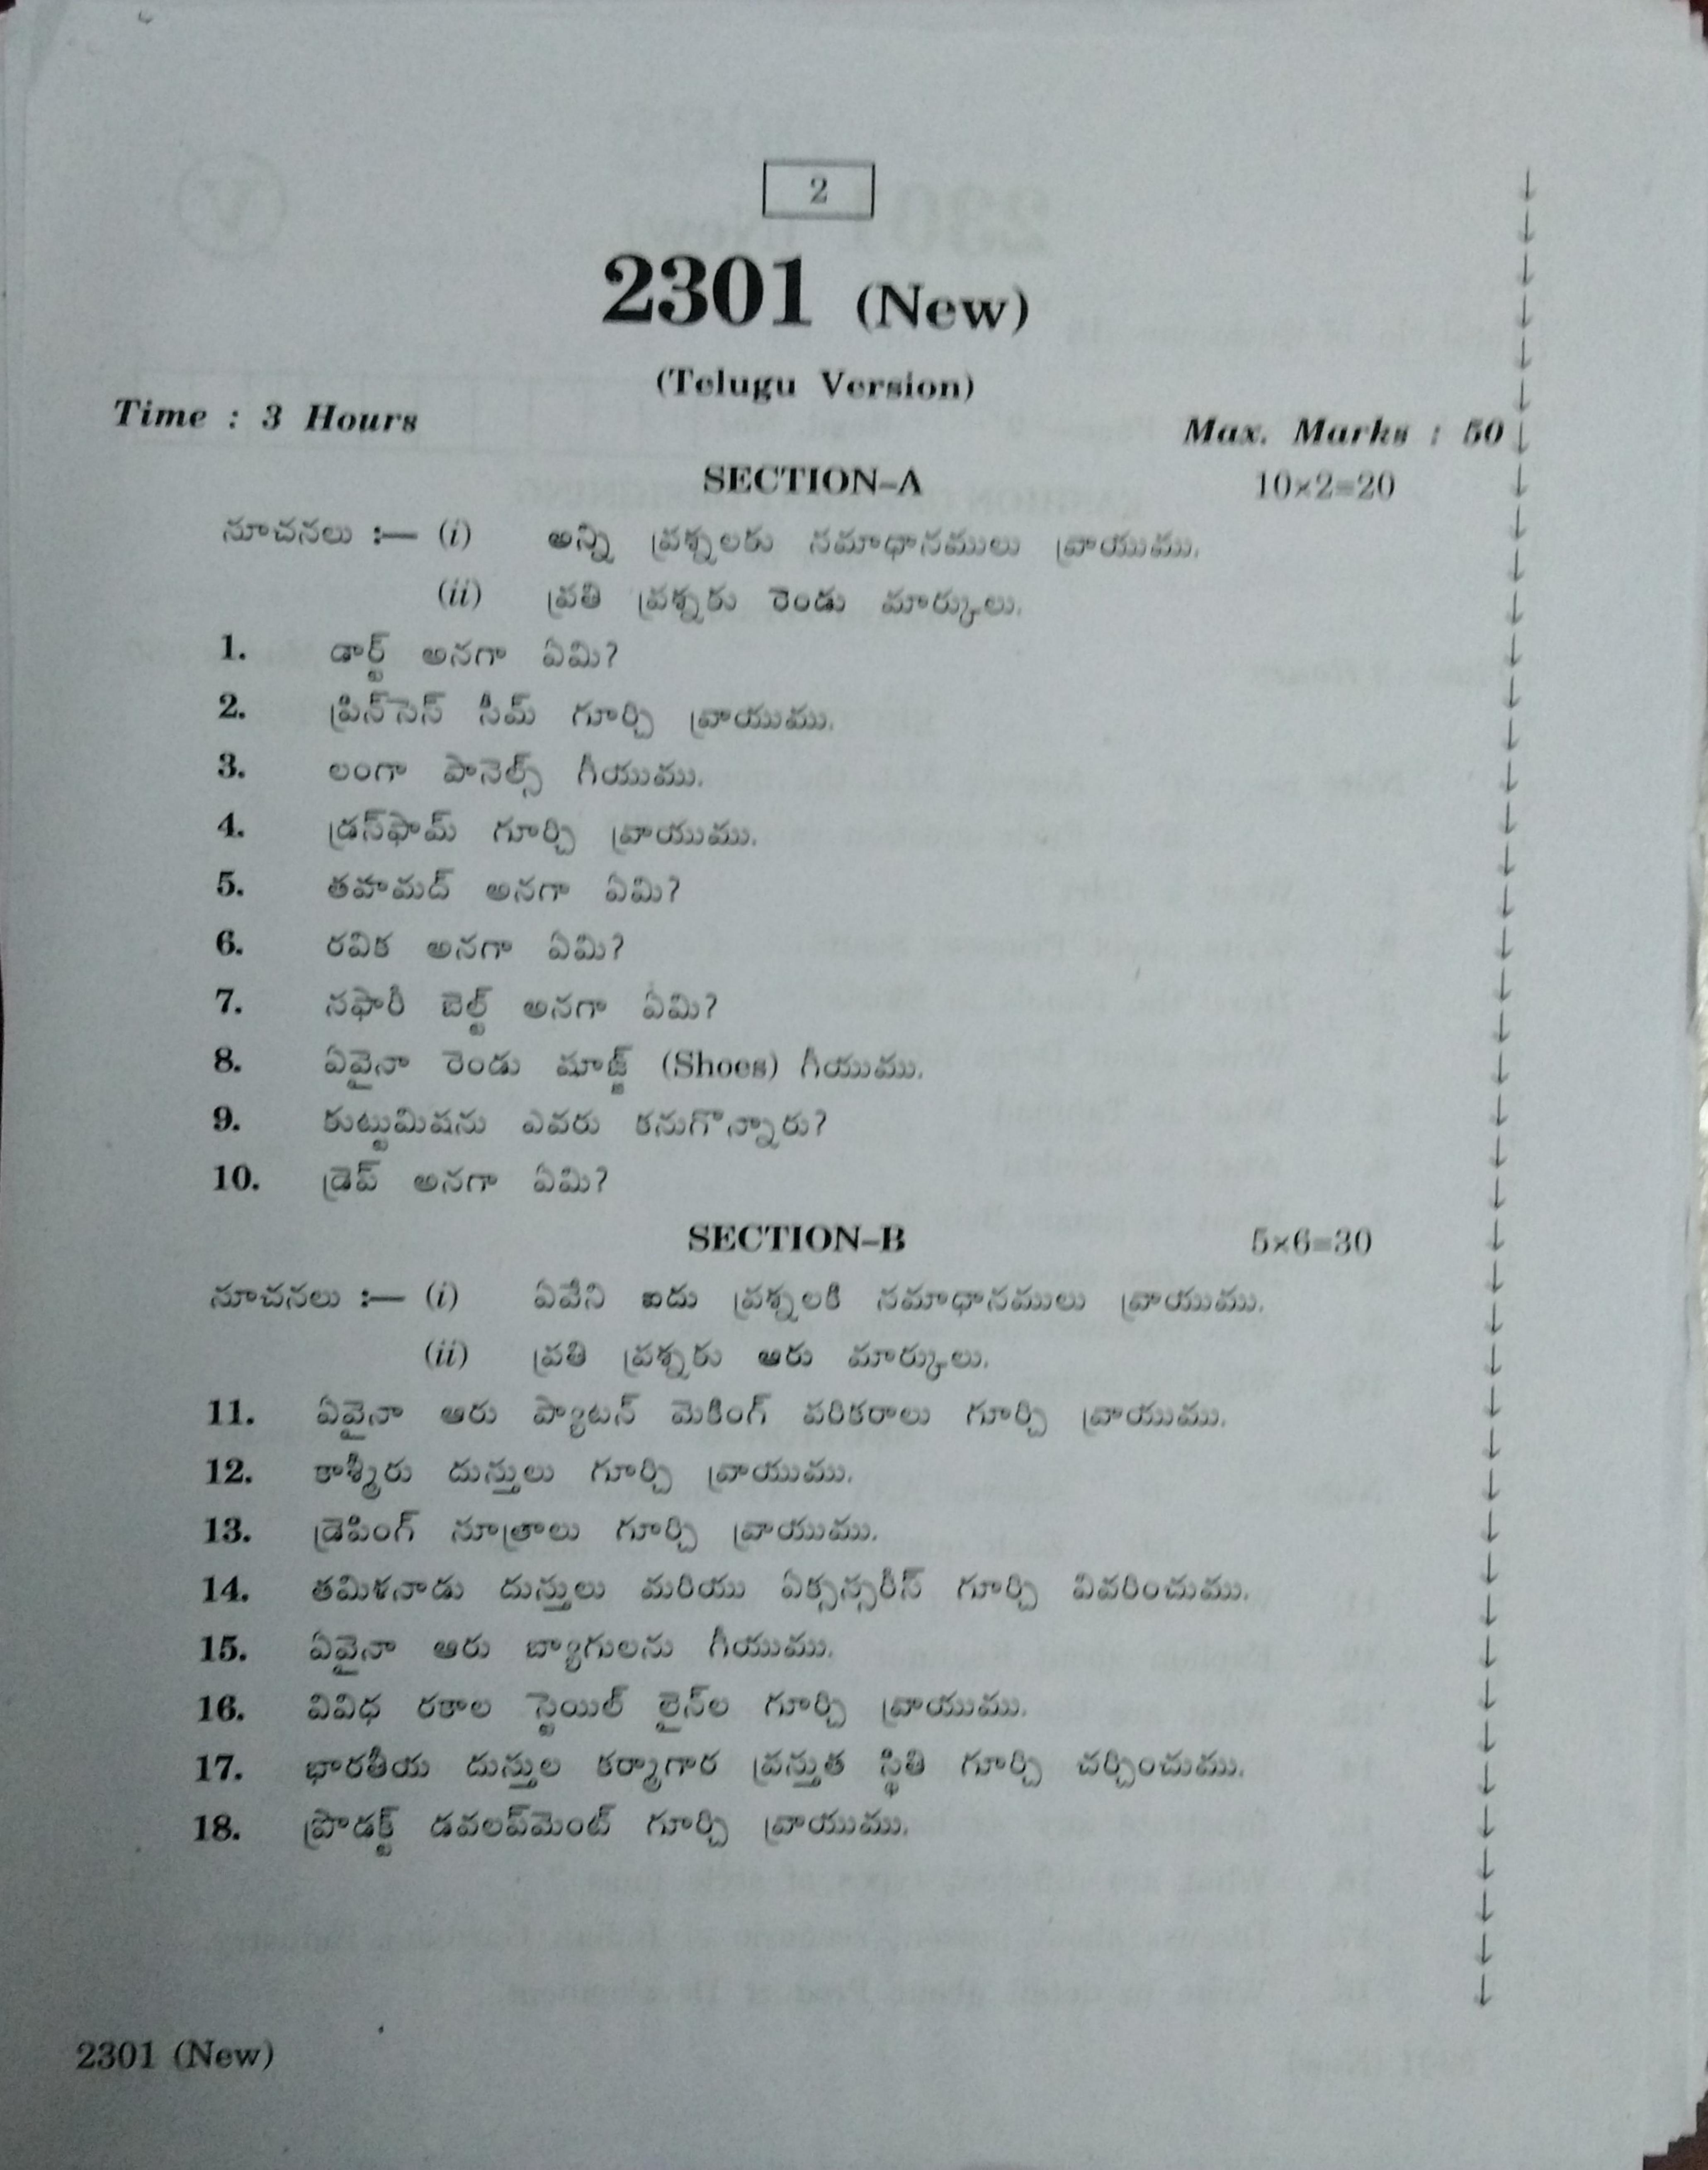 2
2301 (New)
(Telugu Version)
Time : 3 Hours
Max. Marks : 50
SECTION–A 10×2=20
సూచనలు :— (i) అన్ని ప్రశ్నలకు సమాధానములు వ్రాయుము.
(ii) ప్రతి ప్రశ్నకు రెండు మార్కులు.
1. డార్ట్ అనగా ఏమి?
2. ప్రిన్‌సెస్ సీమ్ గూర్చి వ్రాయుము.
3. లంగా పానెల్స్ గీయుము.
4. డ్రస్‌ఫామ్ గూర్చి వ్రాయుము.
5. తహమద్ అనగా ఏమి?
6. రవిక అనగా ఏమి?
7. సఫారీ బెల్ట్ అనగా ఏమి?
8. ఏవైనా రెండు షూజ్ (Shoes) గీయుము.
9. కుట్టుమిషను ఎవరు కనుగొన్నారు?
10. డ్రెప్ అనగా ఏమి?
SECTION–B 5×6=30
సూచనలు :— (i) ఏవేని ఐదు ప్రశ్నలకి సమాధానములు వ్రాయుము.
(ii) ప్రతి ప్రశ్నకు ఆరు మార్కులు.
11. ఏవైనా ఆరు ప్యాటన్ మెకింగ్ పరికరాలు గూర్చి వ్రాయుము.
12. కాశ్మీరు దుస్తులు గూర్చి వ్రాయుము.
13. డ్రెపింగ్ సూత్రాలు గూర్చి వ్రాయుము.
14. తమిళనాడు దుస్తులు మరియు ఏక్సస్సరీస్ గూర్చి వివరించుము.
15. ఏవైనా ఆరు బ్యాగులను గీయుము.
16. వివిధ రకాల స్టెయిల్ లైన్‌ల గూర్చి వ్రాయుము.
17. భారతీయ దుస్తుల కర్మాగార ప్రస్తుత స్థితి గూర్చి చర్చించుము.
18. ప్రొడక్ట్ డవలప్‌మెంట్ గూర్చి వ్రాయుము.
2301 (New)